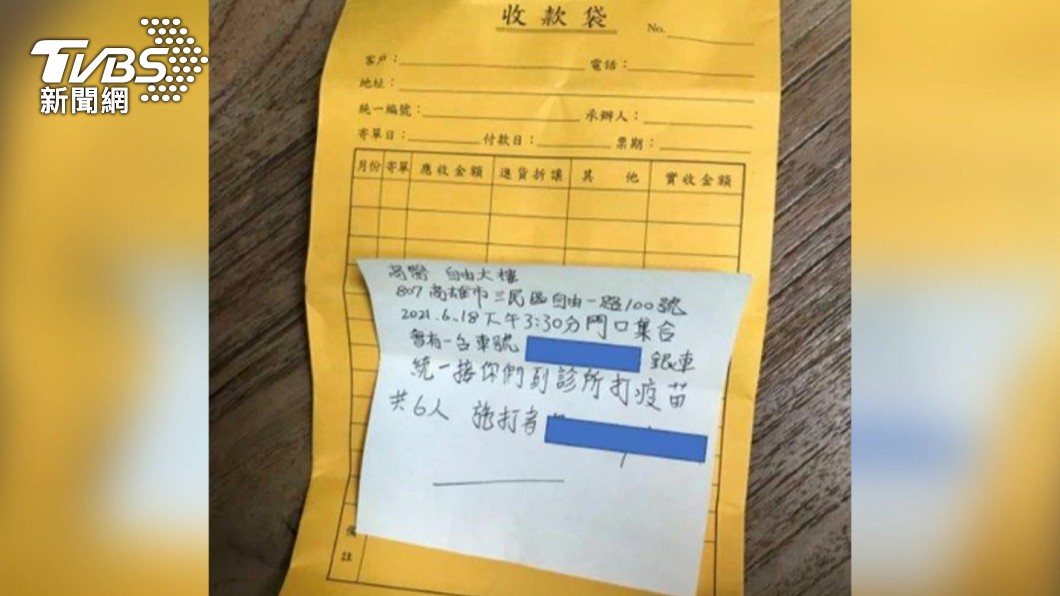 TVBS
新聞網
收款袋
No.
客戶： 電話：
地址：
統一編號： 承辦人：
寄單日： 付款日： 票期：
月份 寄單 應收金額 進貨折讓 其 他 實收金額
高醫 自由大樓
807高雄市三民區自由一路100號
2021.6.18下午3:30分門口集合
會有一台車號 銀車
統一接你們到診所打疫苗
共6人 施打者
備註